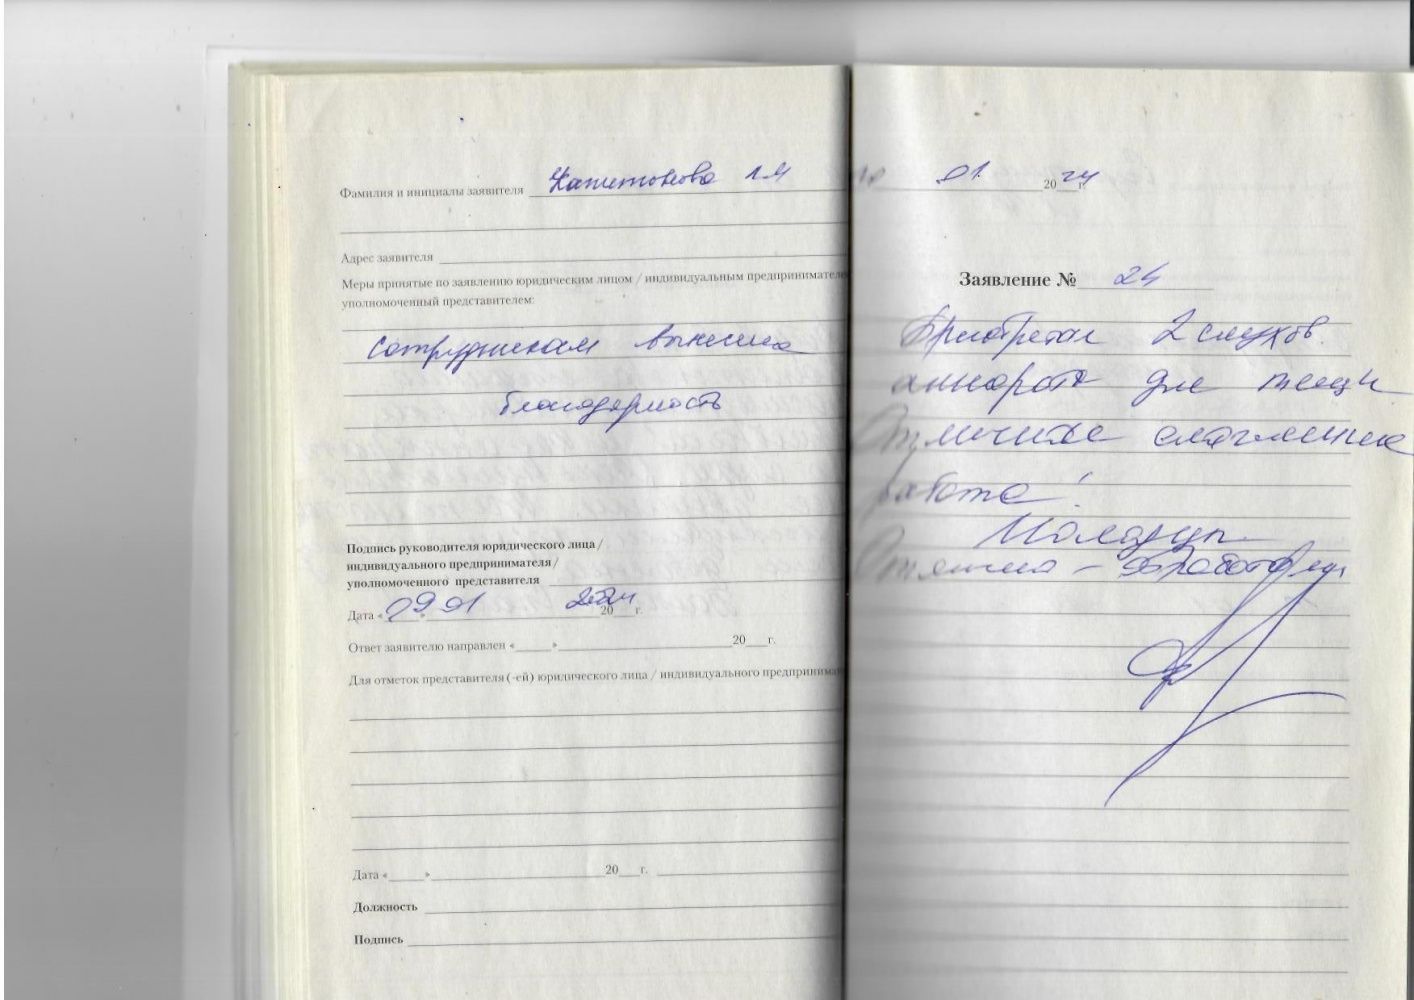 Фамилия и инициалы заявителя Капитонова Л М
Адрес заявителя
Меры принятые по заявлению юридическим лицом / индивидуальным предпринимателем
уполномоченный представителем:
сотрудникам вынесена
благодарность
Подпись руководителя юридического лица /
индивидуального предпринимателя /
уполномоченного представителя
Дата « 09 » 01 2024 20 г.
Ответ заявителю направлен « » 20 г.
Для отметок представителя (-ей) юридического лица / индивидуального предпринима
Дата « » 20 г.
Должность
Подпись
01. 20 24 г.
Заявление № 24
Приобретал 2 слухов.
аппарата для тещи
Отличное
работа!
Молодцы